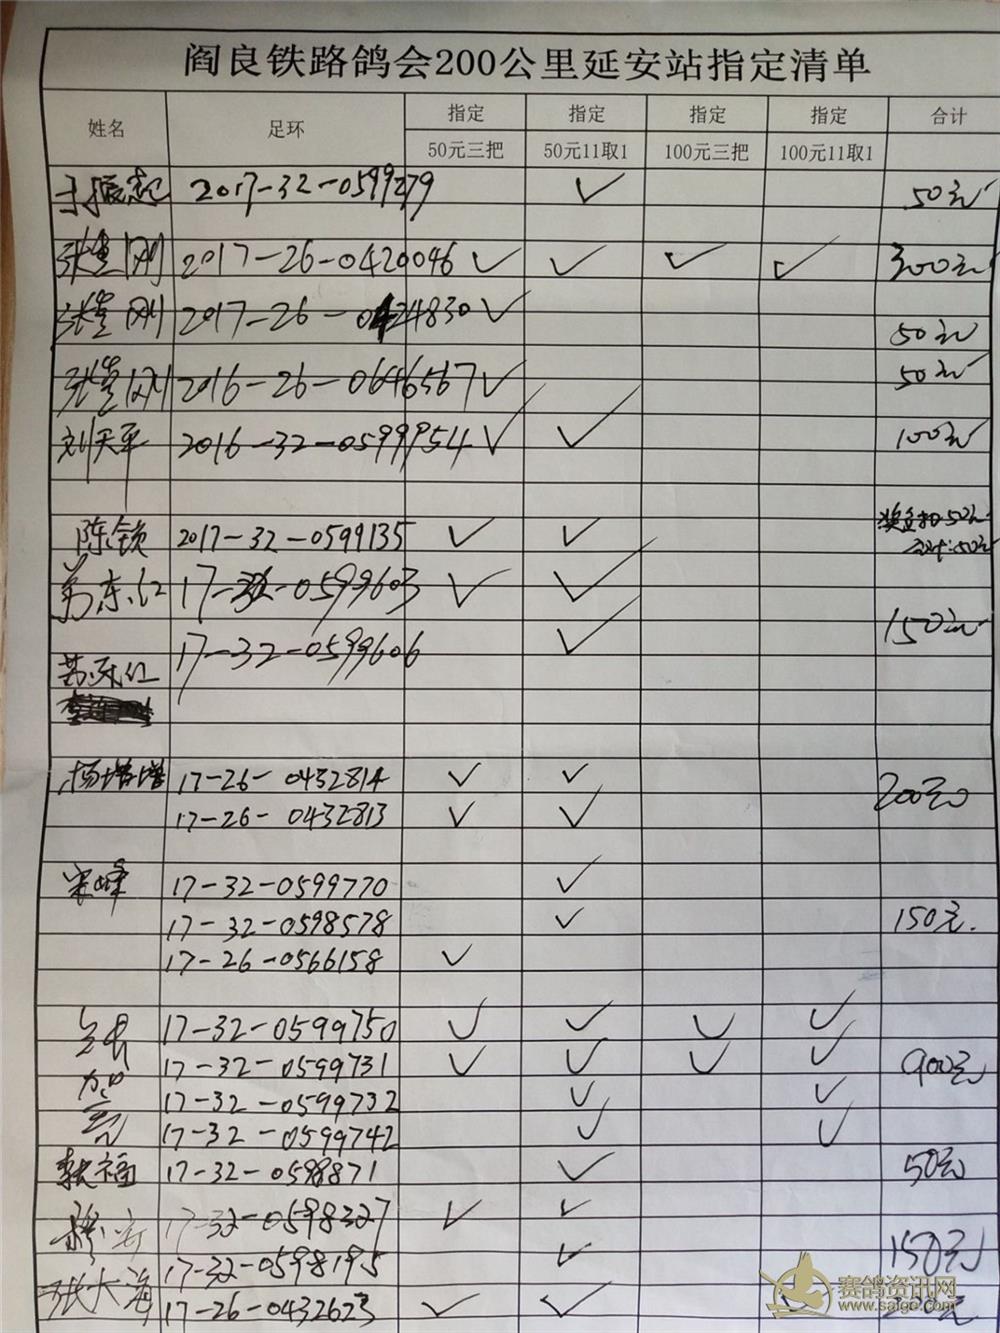 阎良铁路鸽会200公里延安站指定清单
姓名 足环 指定 指定 指定 指定 合计
50元三把 50元11取1 100元三把 100元11取1
2017-32-0599279 ✓ 50元
张 刚 2017-26-0420046 ✓ ✓ ✓ ✓ 300元
张 刚 2017-26-0424830 ✓ 50元
张 刚 2016-26-0646567 ✓ 50元
刘天平 2016-32-0599954 ✓ ✓ 100元
陈锁 2017-32-0599135 ✓ ✓ 奖金扣50元
合计:50元
东红 17-32-0599603 ✓ ✓ 150元
东红 17-32-0599606 ✓
杨增增 17-26-0432814 ✓ ✓ 200元
17-26-0432813 ✓ ✓
宋峰 17-32-0599770 ✓
17-32-0598578 ✓ 150元.
17-26-0566158 ✓
17-32-0599750 ✓ ✓ ✓ ✓
17-32-0599731 ✓ ✓ ✓ ✓ 900元
加 17-32-0599732 ✓ ✓
17-32-0599742 ✓ ✓
福 17-32-0598871 ✓ 50元
安 17-32-0598327 ✓ ✓ 150元
17-32-0598195 ✓
张大海 17-26-0432623 ✓ ✓ ✓ 200元
赛鸽资讯网
www.saige.com